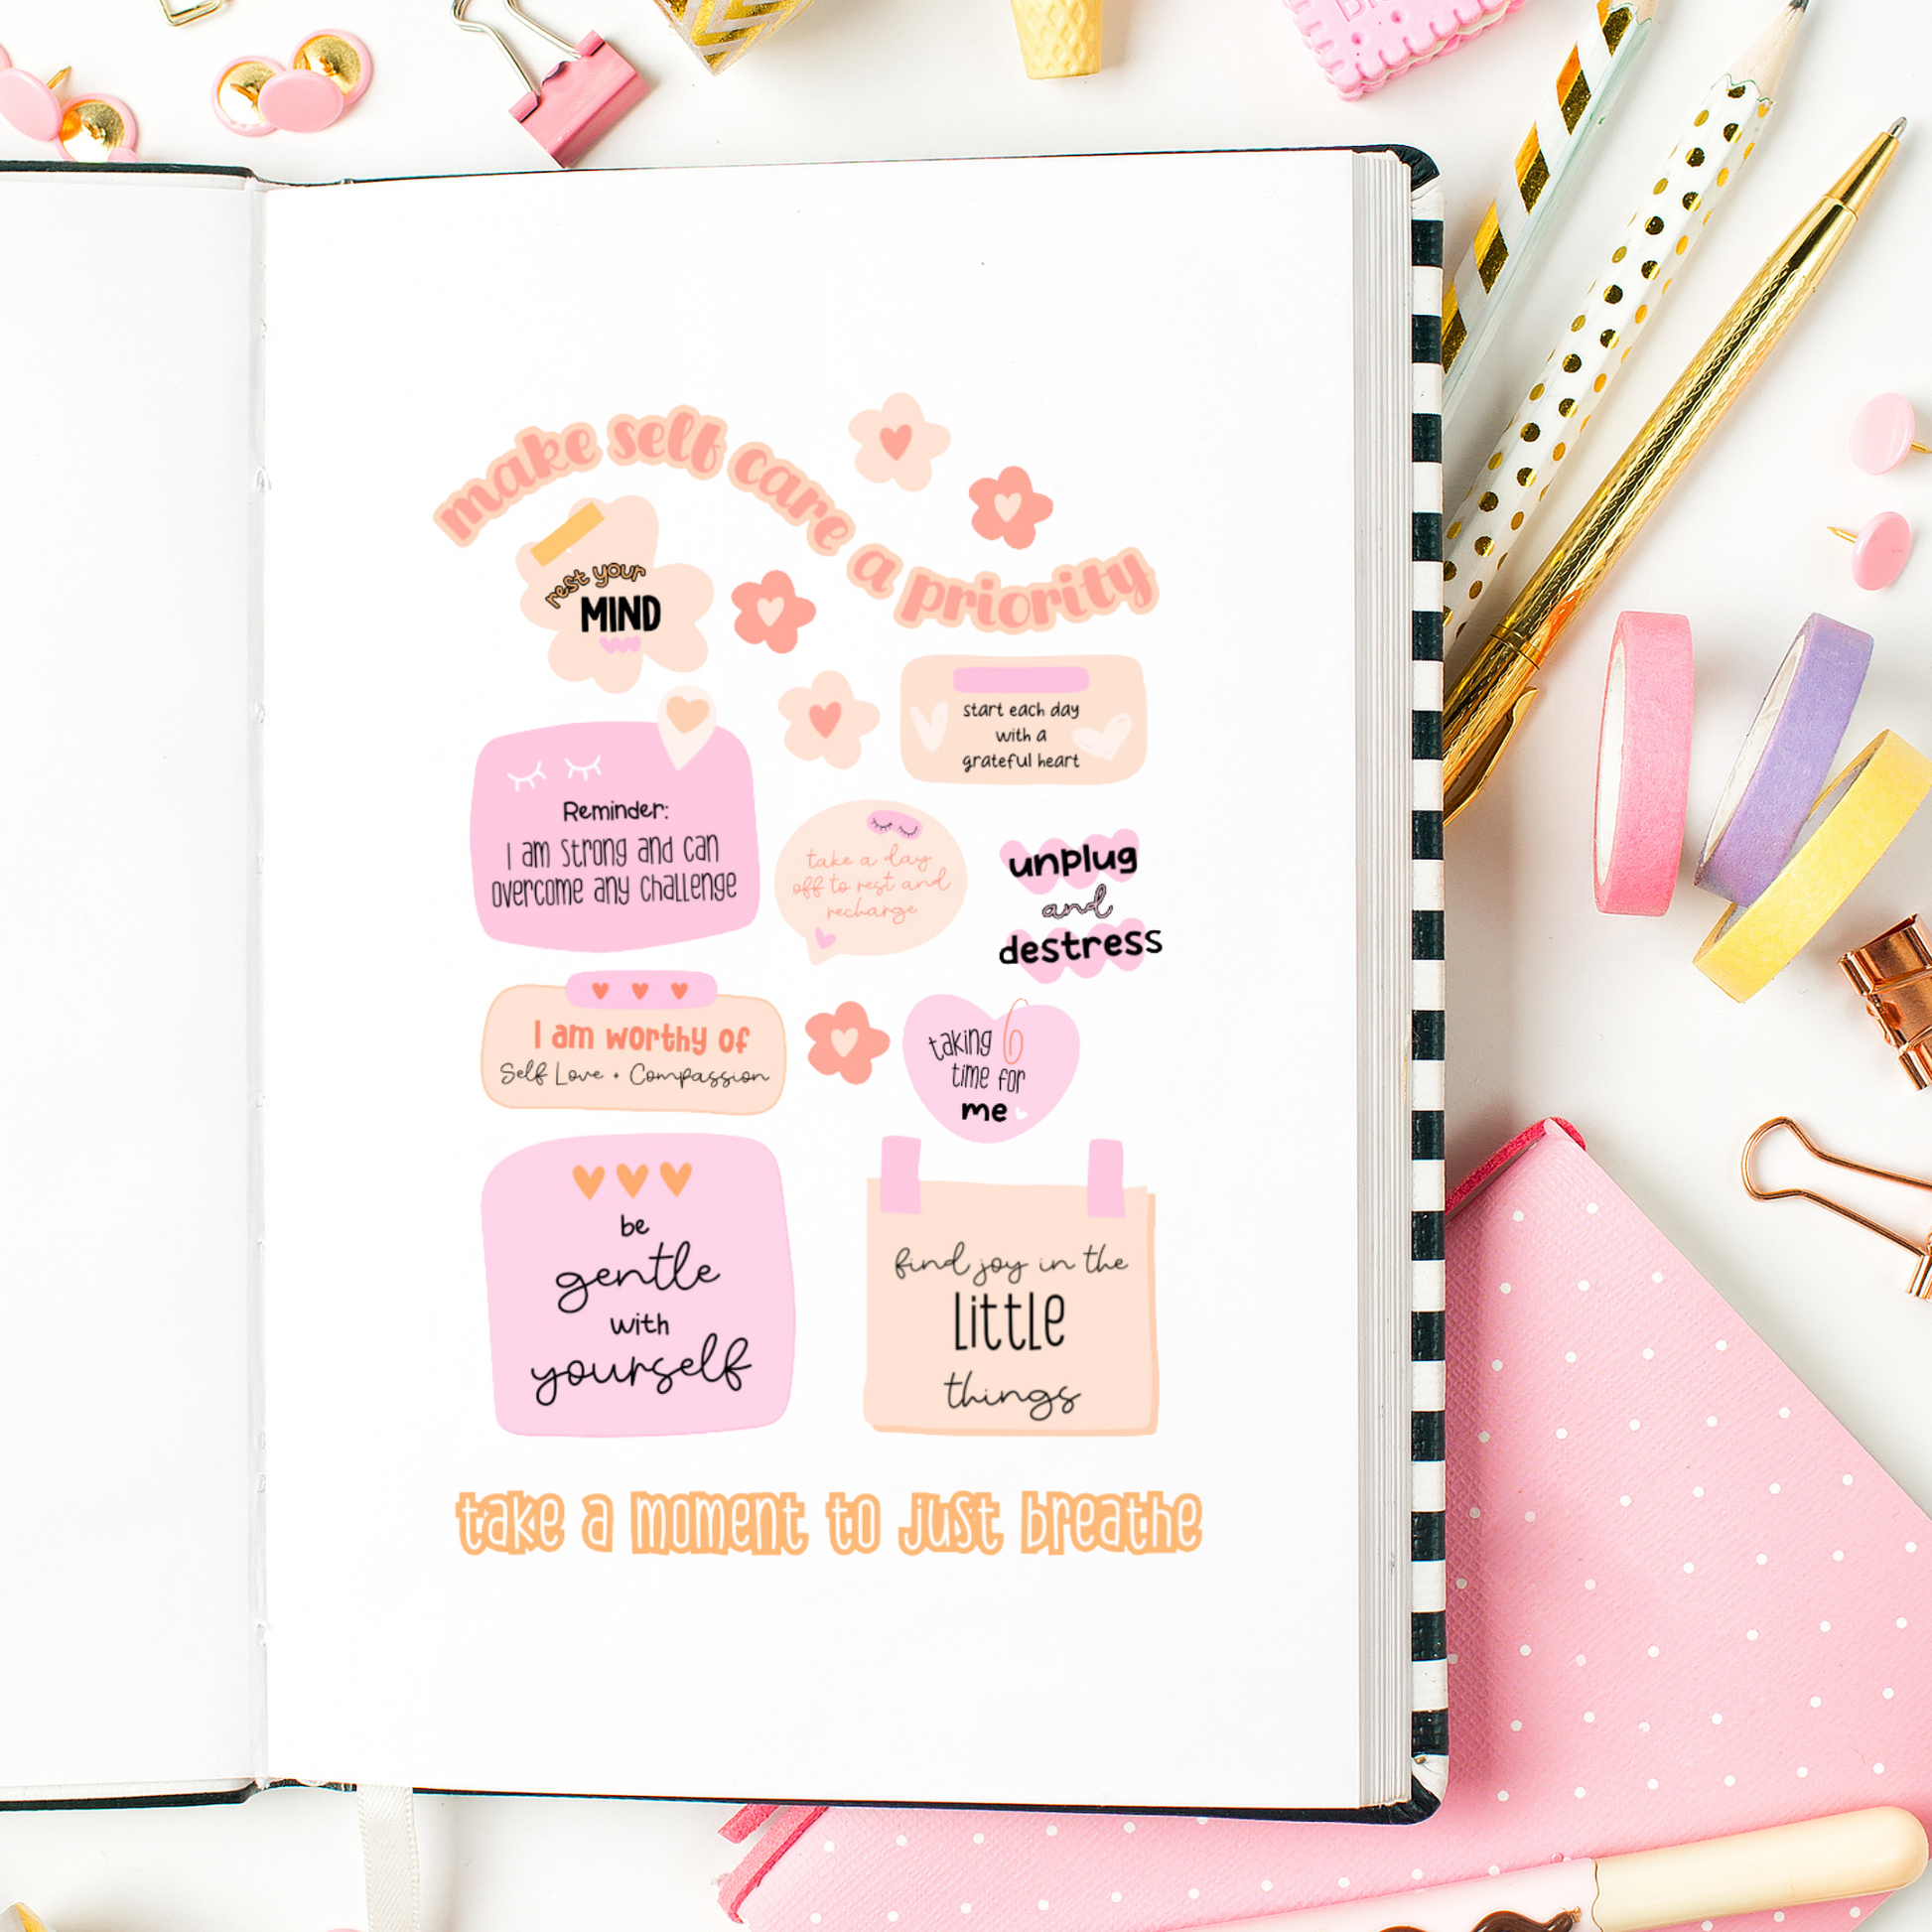 make self care a priority
rest your
MIND
start each day
with a
grateful heart
Reminder:
I am strong and can
overcome any challenge
take a day
off to rest and
recharge
unplug
and
destress
I am worthy of
Self Love + Compassion
taking
time for
me
be
gentle
with
yourself
find joy in the
little
things
take a moment to just breathe